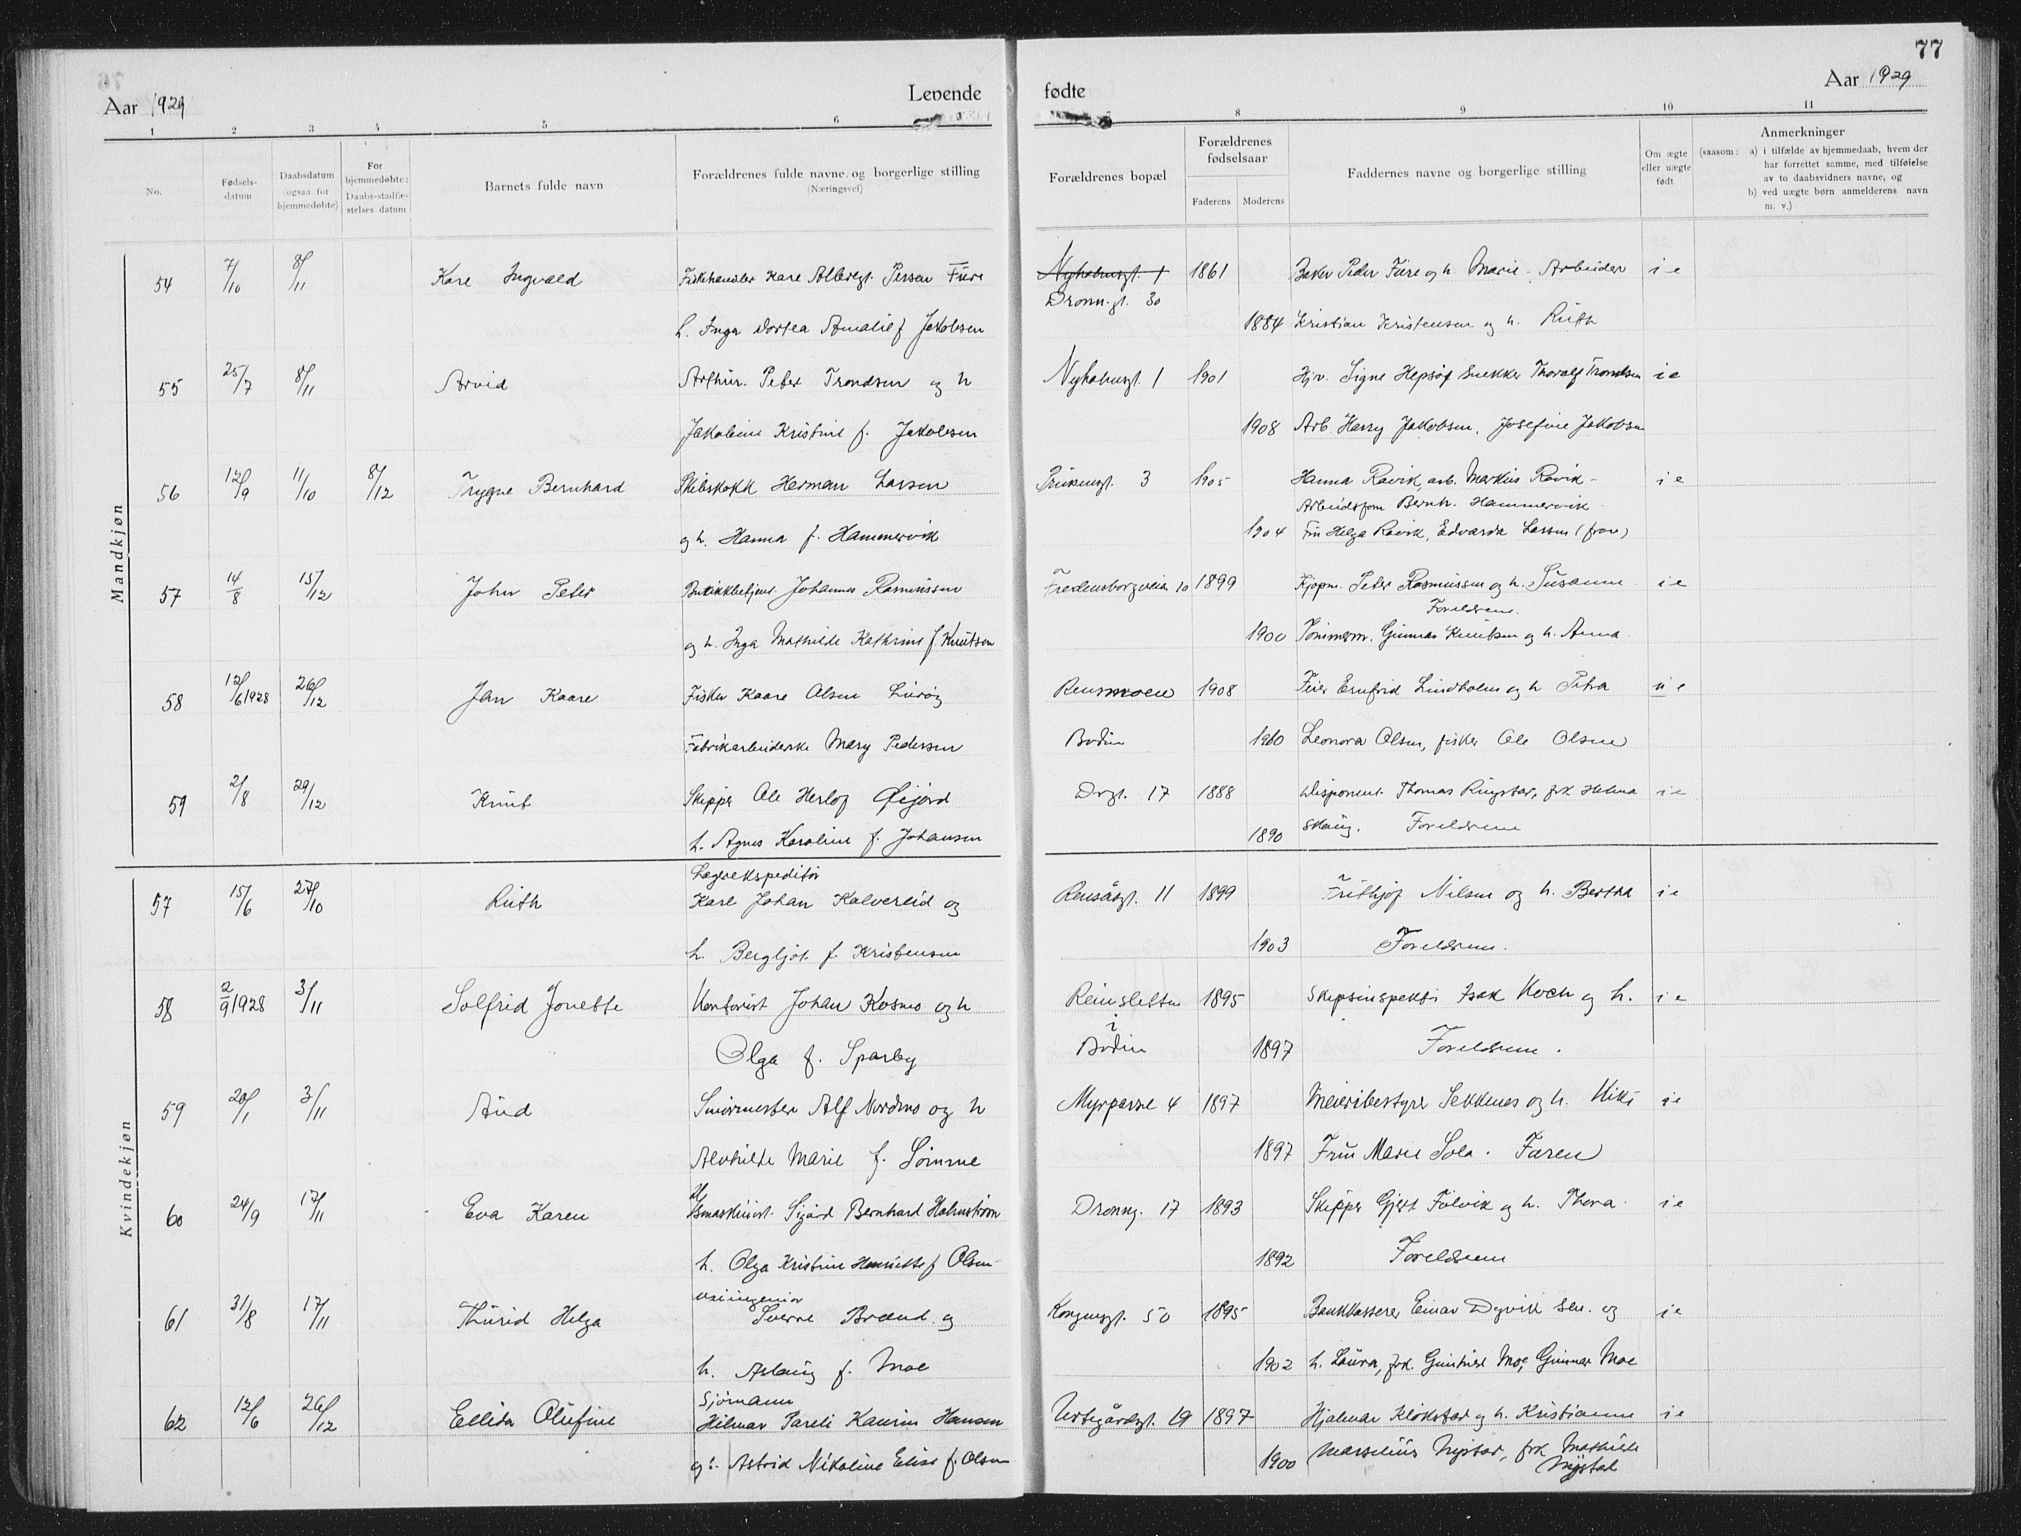 77
Aar 1929
Levende
fødte
Aar 1929
1 2 3 4 5 6
8 9 10 11
No.
Fødsels-
datum
Daabsdatum
(ogsaa for
hjemmedøbte)
For
hjemmedøbte:
Daabs-stadfæ-
stelses datum
Barnets fulde navn
Forældrenes fulde navne og borgerlige stilling
(Næringsvei)
Forældrenes bopæl
Forældrenes
fødselsaar
Faderens
Moderens
Faddernes navne og borgerlige stilling
Om ægte
eller uægte
født
Anmerkninger
(saasom: a) i tilfælde av hjemmedaab, hvem der
har forrettet samme, med tilføielse
av to daabsvidners navne, og
b) ved uægte børn anmelderens navn
m. v.)
Mandkjøn
54 7/10 8/11 Kare Ingvald Fiskehandler Kare Albregt. Persen Fure Nyholmsgt 1 1861 Baker Peder Fure og h. Marie. Arbeider i e
Dronn.gt. 30
h. Inga Dortea Amalie f Jakobsen 1884 Kristian Kristensen og h. Ruth
55 25/7 8/11 Arvid Arthur Peter Trondsen og h Nyholmsgt 1 1901 Hjv. Signe Hepsøf Snekker Thoralf Trondsen i e
Jakobine Kristine f. Jakobsen 1908 Arb. Harry Jakobsen, Josefine Jakobsen
56 12/9 11/10 8/12 Trygve Bernhard Skibskokk Herman Larsen Prinsensgt. 3 1905 Hanna Ravik, arb. Markus Ravik - i e
Arbeidsform Bernh. Hammervik
og h. Hanna f. Hammervik 1904 Fru Helga Ravik, Edvarda Larsen (frav)
57 14/8 15/12 John Peter Butikkbetjent Johannes Rasmussen Fredensborgveien 10 1899 Kjøpm. Peter Rasmussen og h. Susanne i e
Foreldrene.
og h. Inga Mathilde Kathrine f. Knutsen 1900 Tømmerm. Gunnar Knutsen og h. Anna.
58 12/6 1928 26/12 Jan Kaare Fisker Kaare Olsen Lurøy Rensmoen 1908 Feier Ernfrid Lindholm og h Petra u e
Fabrikarbeiderske Mary Pedersen Bodin 1910 Leonora Olsen, fisker Ole Olsen
59 2/8 29/12 Knut Skipper Ole Herlof Øijord Drgt. 17 1888 Disponent Thomas Ringstad, frk Helma i e
h. Agnes Karoline f. Johansen 1890 Skaug. Foreldrene
Kvindekjøn
Lagerekspeditør
57 15/6 27/10 Ruth Karl Johan Kalvereid og Rensåsgt. 11 1899 Frithjof Nilsen og h. Bertha i e
h. Bergljot f. Kristensen 1903 Foreldrene.
58 2/9 1928 3/11 Solfrid Jonette Kontorist Johan Kosmo og h Reinsletten 1895 Skipsinspektør Isak Koch og h. i e
i
Olga f. Sparby Bodin 1897 Foreldrene.
59 20/1 3/11 Aud Smørmester Alf Nordmo og h Myrparne 4 1897 Meieribestyrer Sekkenes og h. i e
Alvhilde Marie f. Sømme 1897 Fru Marie Sola. Faren
60 24/9 17/11 Eva Karen Sigurd Bernhard Holmstrøm Dronng. 17 1893 Skipper Gjert Folvik og h. Thora i e
h. Olga Kristine Henriette f Olsen 1892 Foreldrene
61 31/8 17/11 Thurid Helga Sverre Brænd og Kongensgt. 50 1895 Bankkasserer Einar Dyvik sen. og i e
h. Aslaug f. Moe 1902 h. Laura, frk. Gunhild Moe, Gunnar Moe
Sjømann
62 12/6 26/12 Ellida Olufine Hilmar Pareli Kaurin Hansen Urtegårdsgt. 19 1897 Hjalmar Klokstad og h. Kristianne i e
og h. Astrid Nikoline Elise f. Olsen 1900 Marselius Nystad, frk Mathilde
Nystad